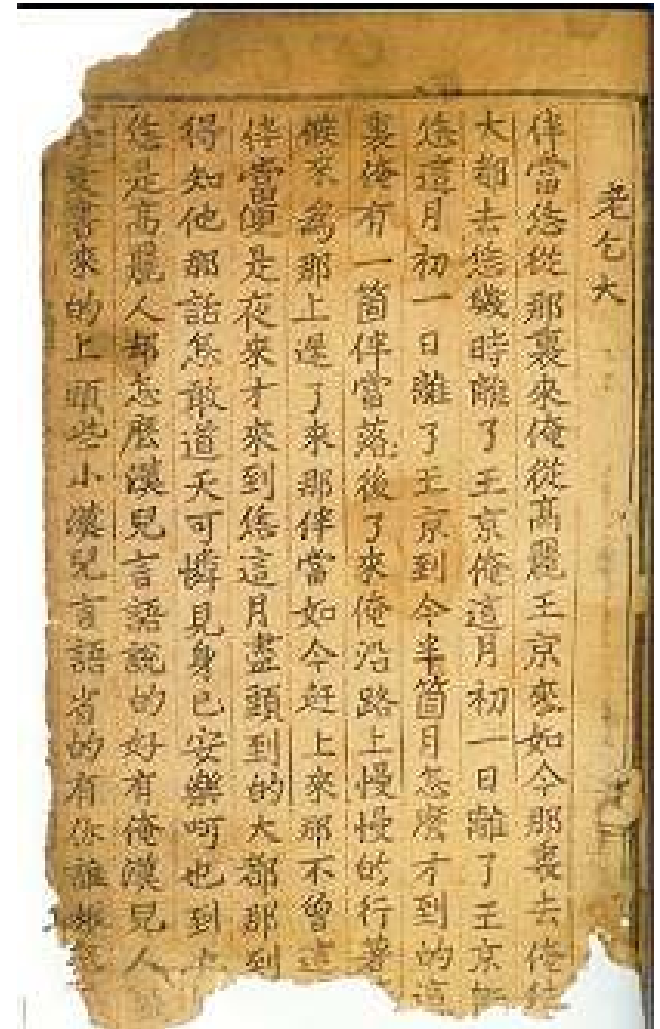 老乞大
伴當恁從那裏來俺從高麗王京來如今那裏去俺往
大都去恁幾時離了王京俺這月初一日離了王京
恁這月初一日離了王京到今半箇月怎麽才到的這
裏俺有一箇伴當落後了來俺沿路上慢慢的行著
候來爲那上遲了來那伴當如今赶上來那不曾這
伴當便是夜來才來到恁這月盡頭到的大都那到
得知他那話怎敢道天可憐見身已安樂呵也到
恁是高麗人却怎麽漢兒言語說的好有俺漢兒人
文書來的上頭些小漢兒言語省的有你誰根